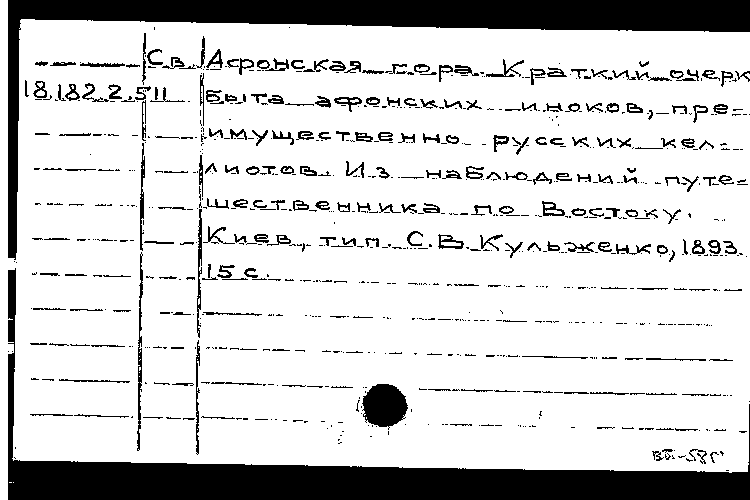 Св Афонская гора. Краткий очерк
18.182.2.511 быта афонских иноков, пре=
имущественно русских кел=
лиотов. Из наблюдений путе=
шественника по Востоку.
Киев, тип. С.В. Кульженко, 1893.
15 с.